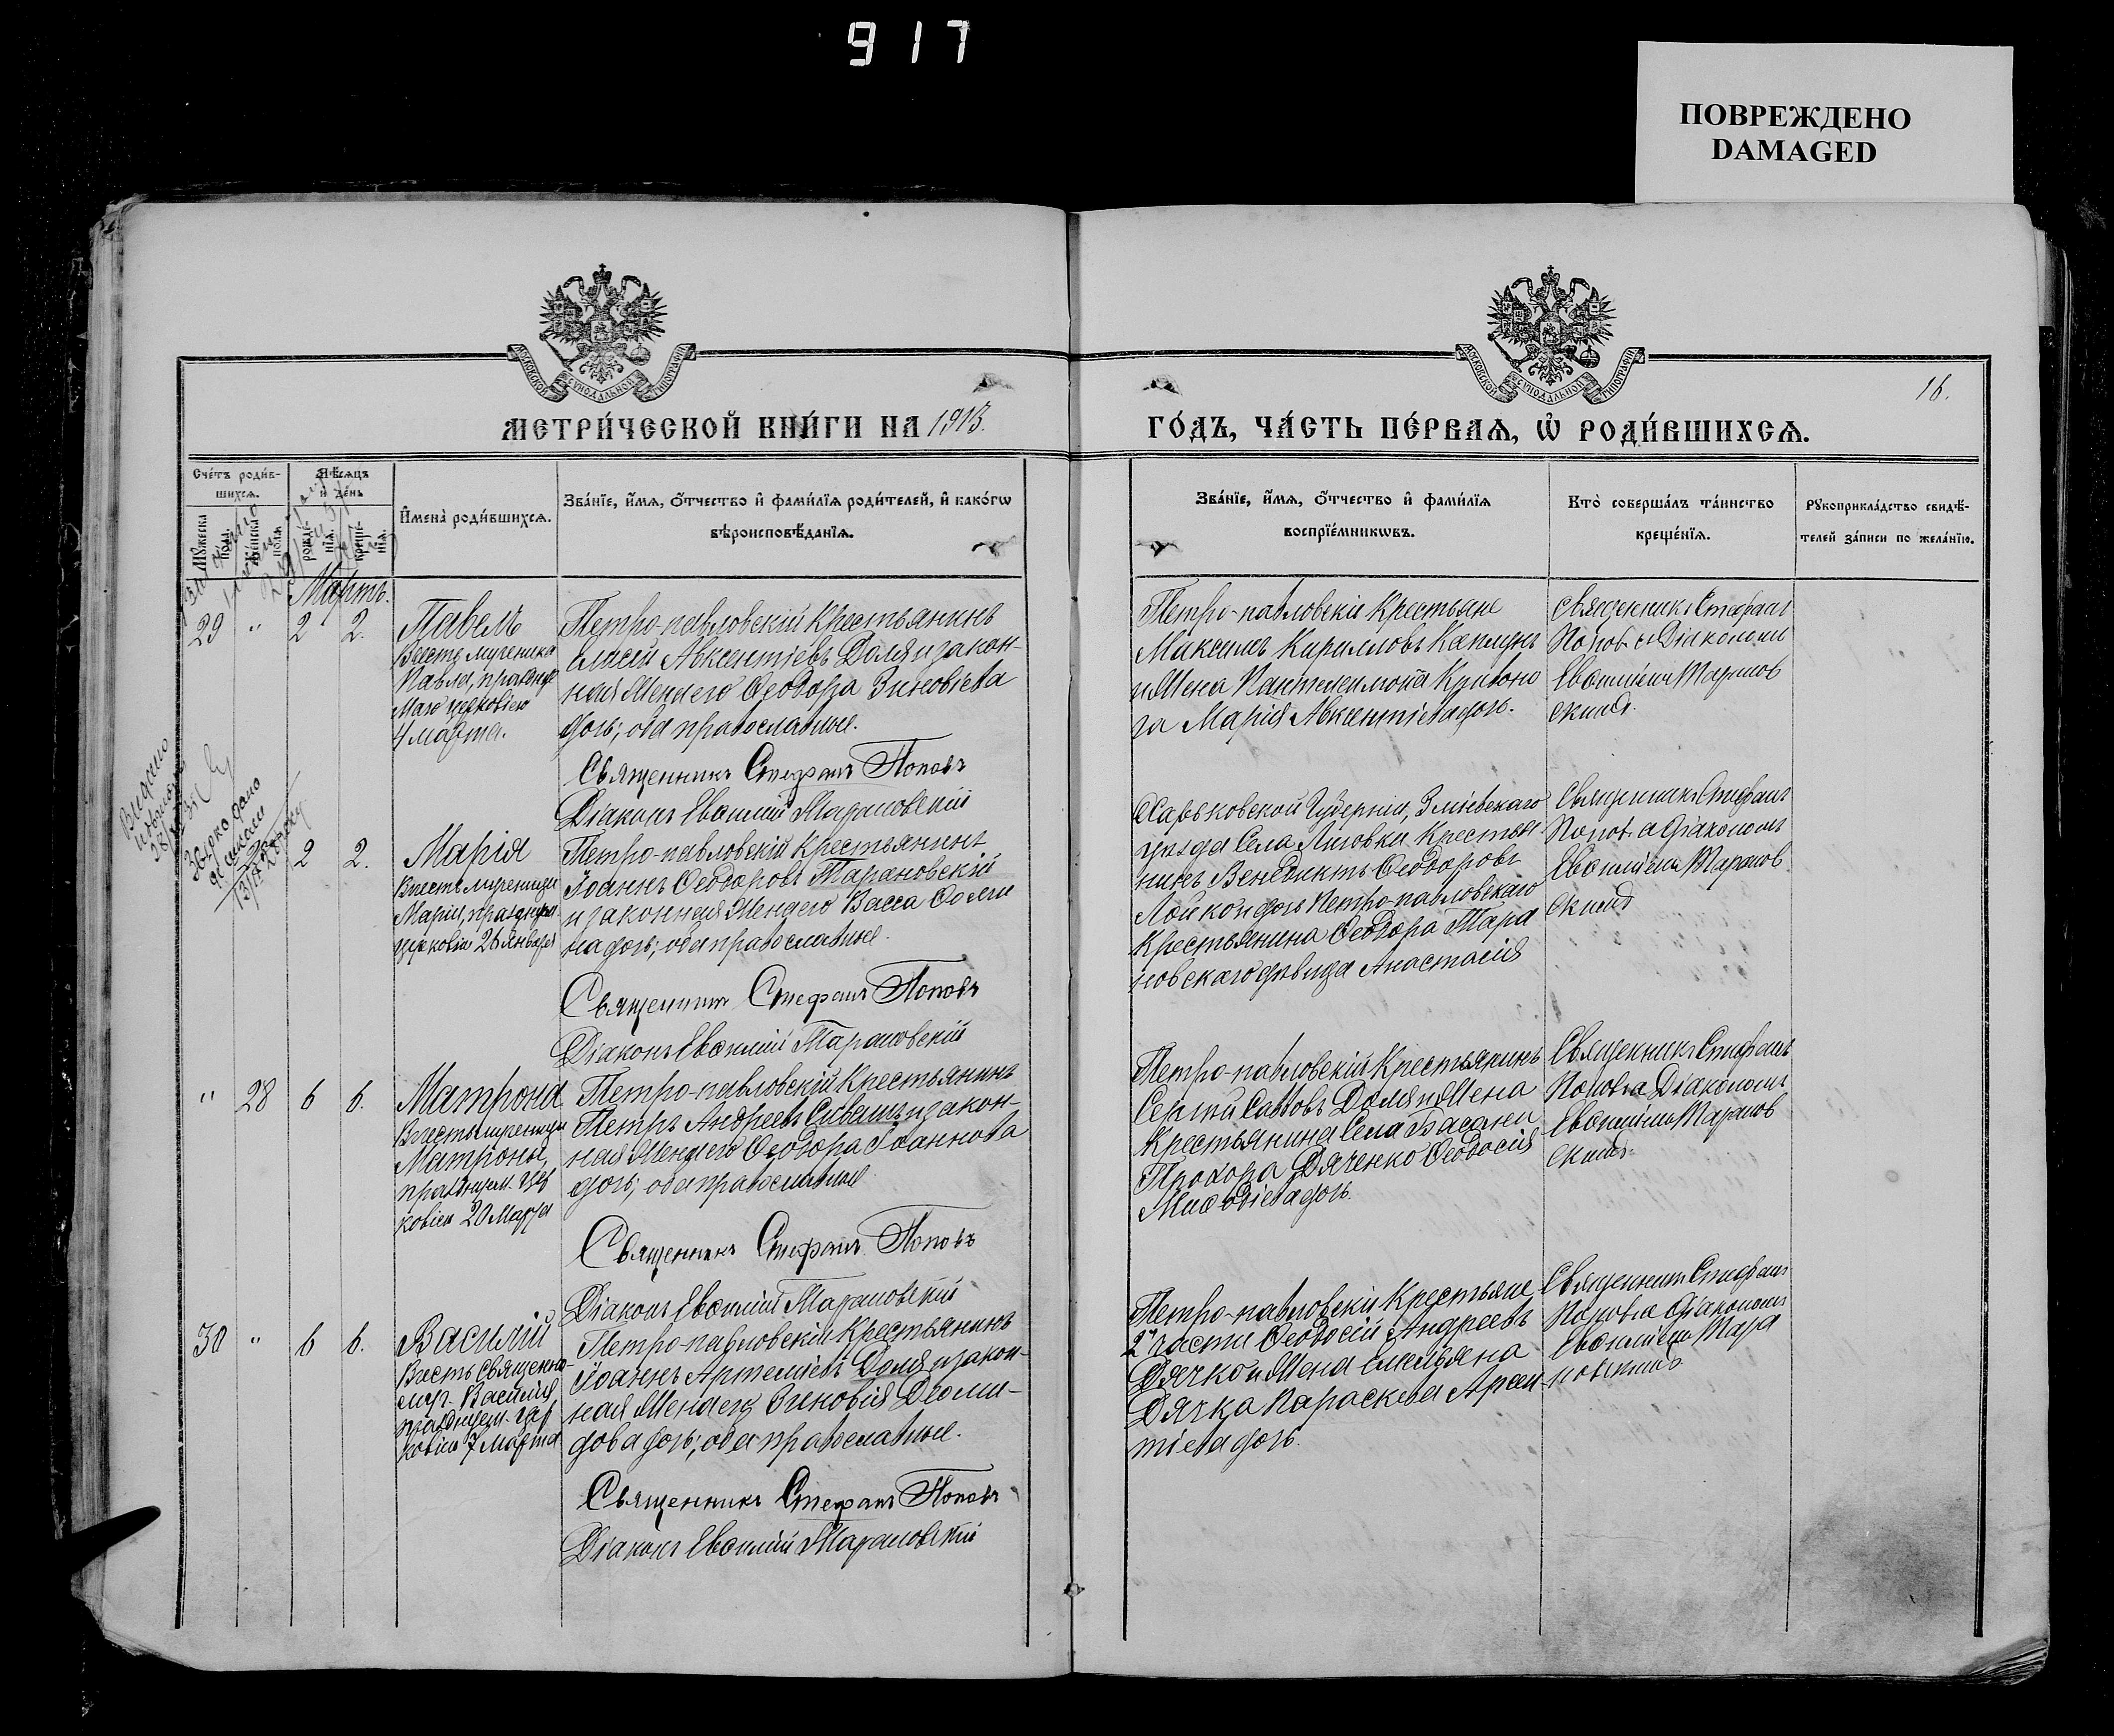 917
ПОВРЕЖДЕНО
DAMAGED
МОСКОВСКОЙ СѴНОДАЛЬНОЙ ТИПОГРАФІИ
МОСКОВСКОЙ СѴНОДАЛЬНОЙ ТИПОГРАФІИ
16.
МЕТРИ́ЧЕСКОЙ КНИ́ГИ НА 1913.
ГО́ДЪ, ЧА́СТЬ ПЕ́РВАѦ, Ѡ РОДИ́ВШИХСѦ.
Сче́тъ роди́в-
шихсѧ.
Мѣ́сѧцъ
и де́нь
Мꙋжеска
пола.
Же́нска
пола.
рожде́-
нїѧ.
креще́-
нїѧ.
И҆мена̀ роди́вшихсѧ.
Зва́нїе, и҆́мѧ, ѻ҆́тчество и҆ фами́лїѧ роди́телей, и҆ како́гѡ
вѣроисповѣ́данїѧ.
Зва́нїе, и҆́мѧ, ѻ҆́тчество и҆ фами́лїѧ
воспрїе́мникѡвъ.
Кто̀ соверша́лъ та́инство
креще́нїѧ.
Рꙋкоприкла́дство свидѣ́-
телей за́писи по жела́нїю.
Мартъ.
29 " 2 2.
Павелъ
Въ честь мученика
Павла, праздн
маго церковію
4 марта.
Петро-павловскій крестьянинъ
Авксентіевъ Доля и закон-
ная жена его Ѳеодора Зиновіева
дочь; оба православные.
Священникъ Стефанъ Поповъ
Діаконъ Евѳимій Тарановскій
Петро-павловскіе крестьяне
Максимъ Кирилловъ Каплунъ
и жена Пантелеимона
га Марія Авксентіева дочь.
Священникъ Стефанъ
Поповъ с діакономъ
Евѳиміемъ Таранов
скимъ.
Выдано
2 2.
Марія
Въ честь мученицы
Маріи, празднуем.
церковію 26 января
Петро-павловскій крестьянинъ
Іоаннъ Ѳеодоровъ Тарановскій
и законная жена его Васса Ѳоми
на дочь; оба православные.
Священникъ Стефанъ Поповъ
Діаконъ Евѳимій Тарановскій
Харьковской Губерніи, Зміевскаго
уѣзда села Лиговки крестья
нинъ Венедиктъ Ѳеодоровъ
Петро-павловскаго
крестьянина Ѳеодора Тара
новскаго дѣвица Анастасія
Священникъ Стефанъ
Поповъ с діакономъ
Евѳиміемъ Таранов
скимъ
" 28 6 6.
Матрона
Въ честь мученицы
Матроны,
празднуем. цер
ковію 20 Марта
Петро-павловскій крестьянинъ
Петръ Андреевъ Сивашъ и закон-
ная жена его Ѳеодора Іоаннова
дочь; оба православные
Священникъ Стефанъ Поповъ
Діаконъ Евѳимій Тарановскій
Петро-павловскій крестьянинъ
Сергій Саввовъ Доля и жена
крестьянина села Басани
Прохора Дяченко Ѳеодосія
Меѳодіева дочь.
Священникъ Стефанъ
Поповъ с діакономъ
Евѳиміемъ Таранов
скимъ.
30 " 6 6.
Василій
Въ честь священно-
муч. Василія
празднуем. цер
ковію 7 Марта
Петро-павловскій крестьянинъ
Іоаннъ Артеміевъ Доля и закон-
ная жена его Зиновія Діоми-
дова дочь; оба православные.
Священникъ Стефанъ Поповъ
Діаконъ Евѳимій Тарановскій
Петро-павловскіе крестьяне
2й части Ѳеодосій Андреевъ
Дячко и жена Емельяна
Дячка Параскева Арсен
тіева дочь.
Священникъ Стефанъ
Поповъ с діакономъ
Евѳиміемъ Тара
новскимъ